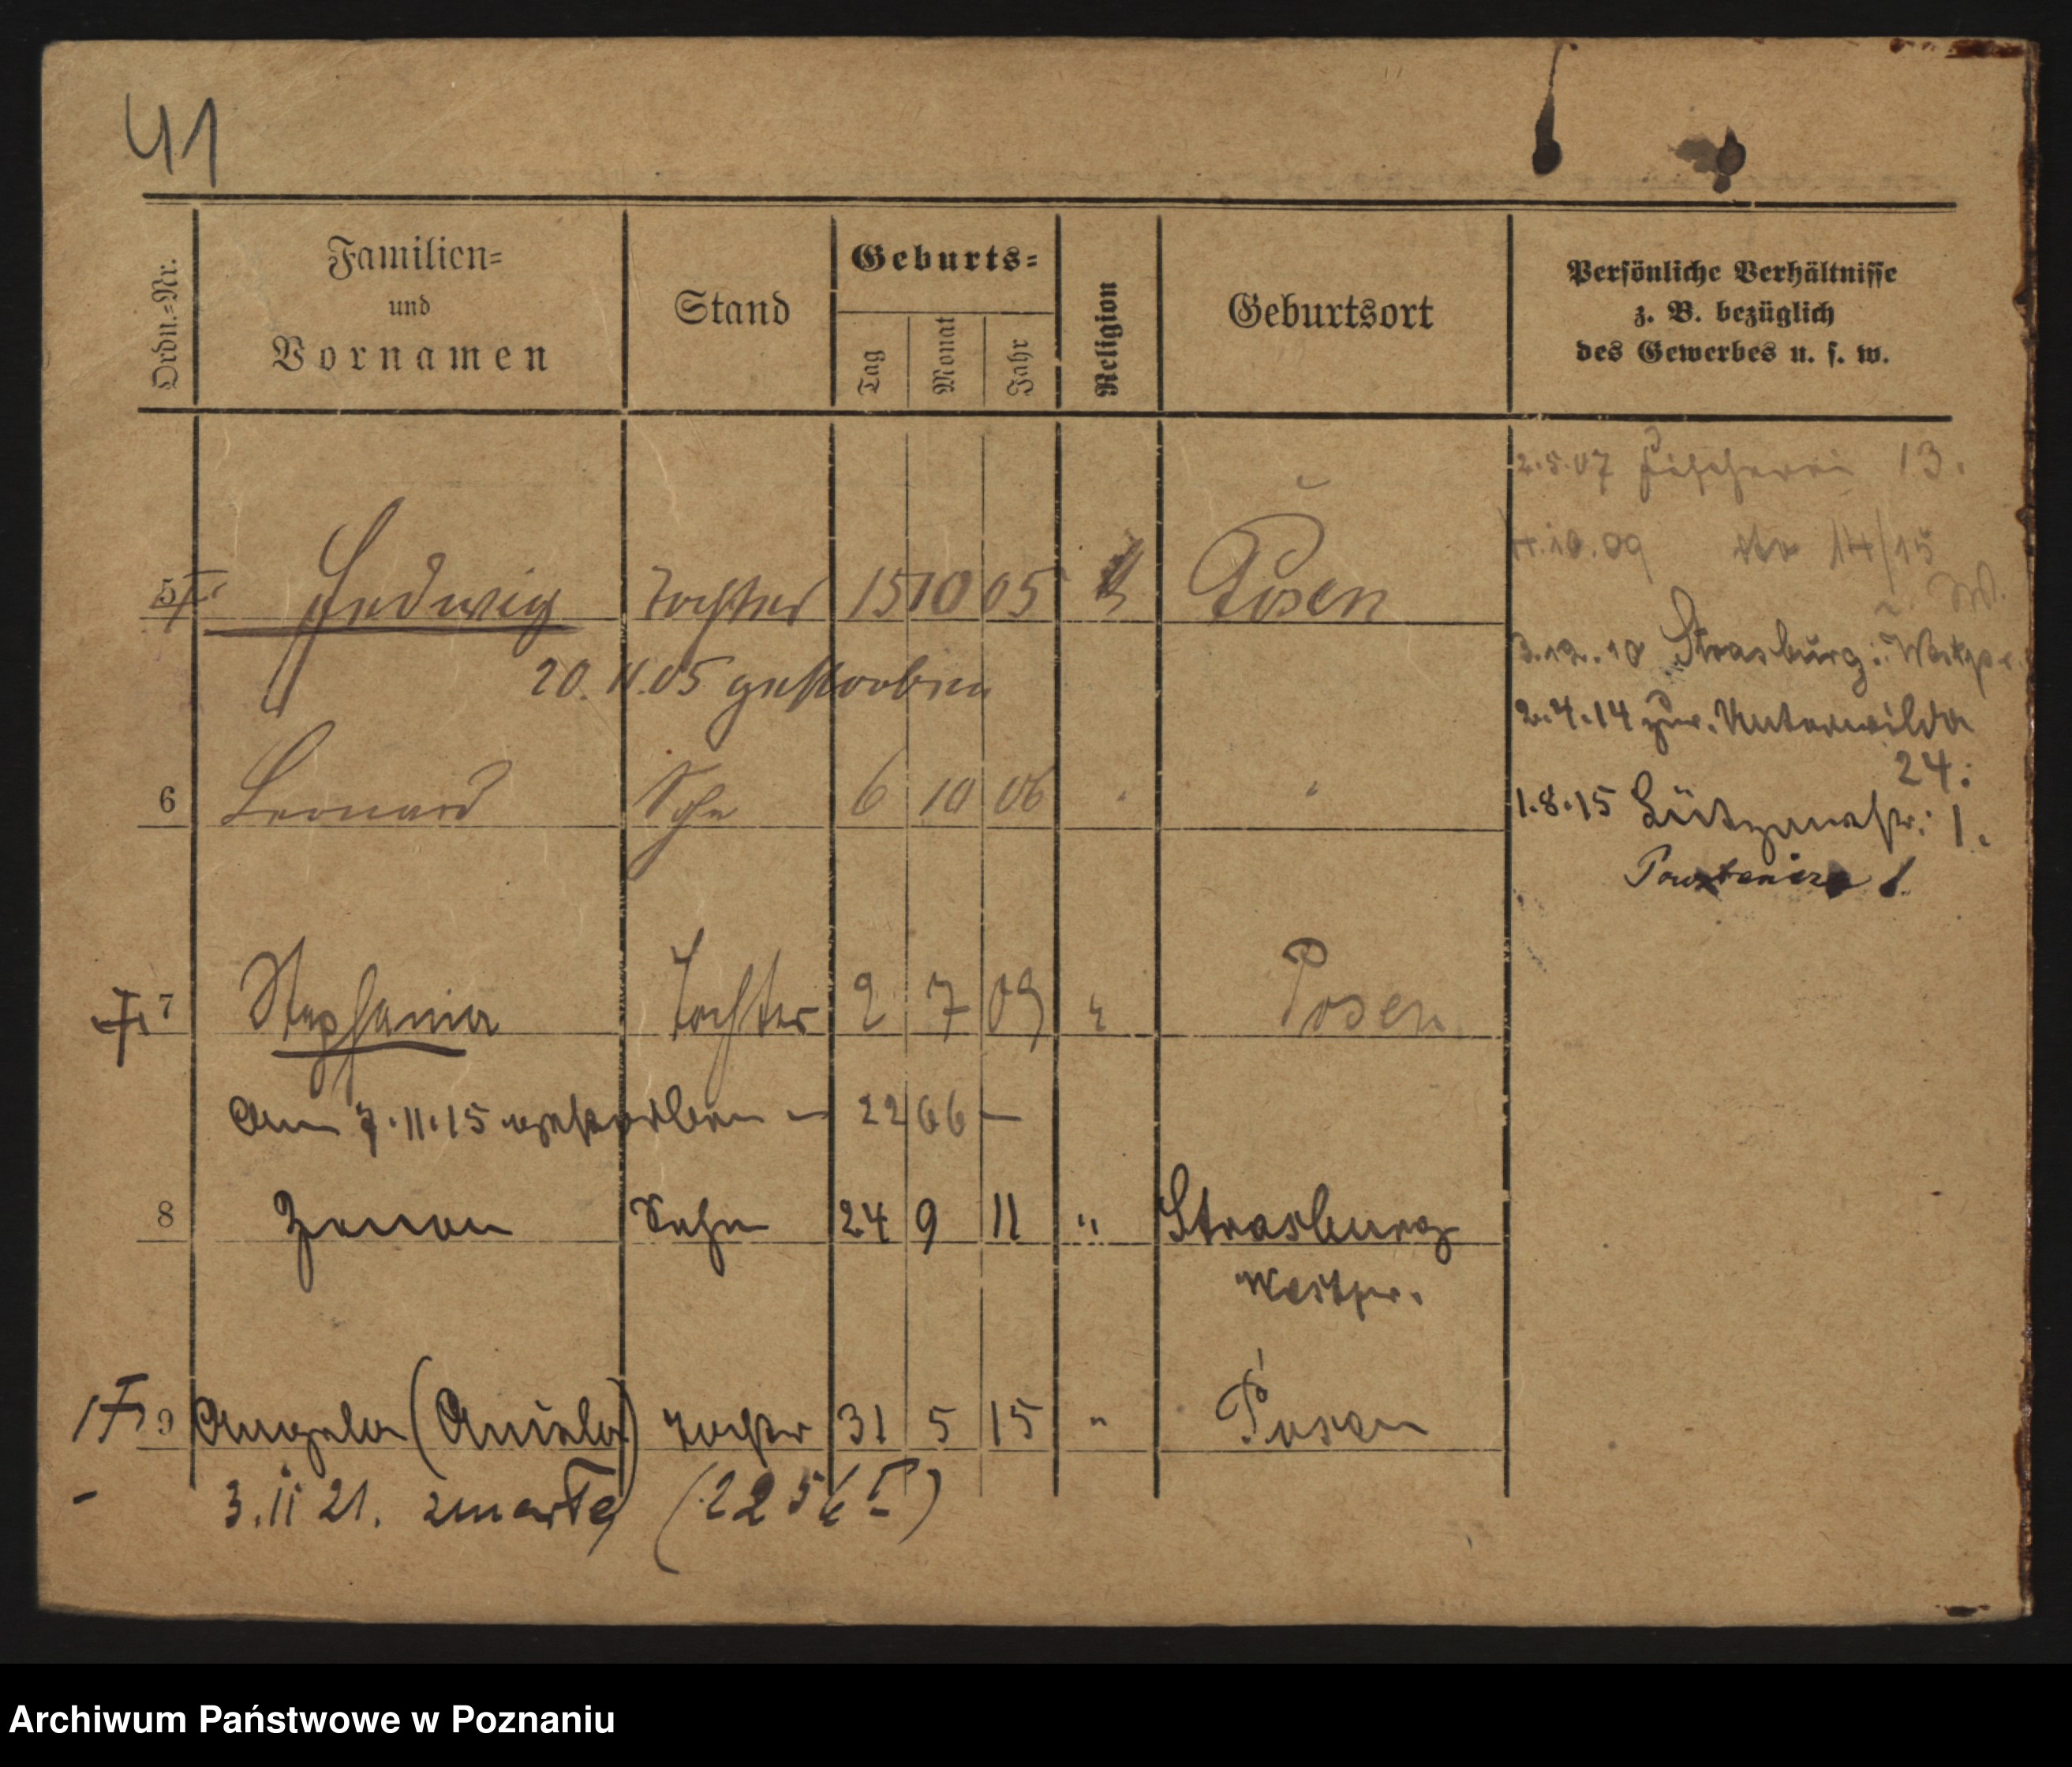 41
Ordn.=Nr.
Familien=
und
Vornamen
Stand
Geburts=
Tag
Monat
Jahr
Religion
Geburtsort
Persönliche Verhältnisse
z. B. bezüglich
des Gewerbes u. s. w.
2.5.07 Fischerei 13.
10.09 14/15
5 Hedwig Tochter 15 10 05 Posen
3.12.10 Strasburg i. Westpr.
20.11.05 gestorben
2.4.14 zur. Unterwilda
24.
6 Leonard Sohn 6 10 06
1.8.15 Lützowstr. 1.
Powstańcza 1.
7 Stephania Tochter 2 7 09 " Posen
Am 7.11.15 gestorben — 2266 —
8 Zenon Sohn 24 9 11 " Strasburg
Westpr.
9 Angela (Aniela) Tochter 31 5 15 " Posen
3.II 21. zmarła
Archiwum Państwowe w Poznaniu